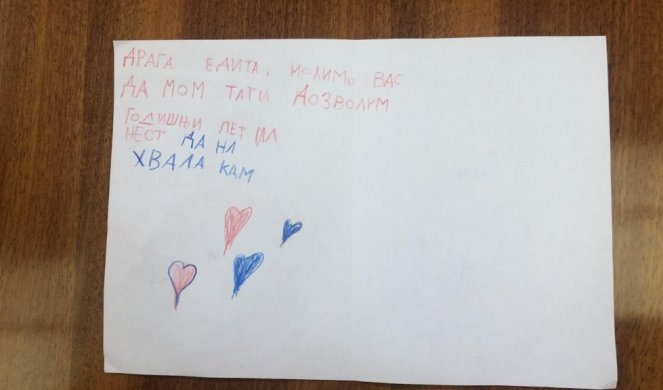 ДРАГА ЕДИТА, МОЛИМО ВАС
ДА МОМ ТАТИ ДОЗВОЛИМ
ГОДИШЊИ ЛЕТ ИЛ
НЕСТ ДА НЛ
ХВАЛА КАМ